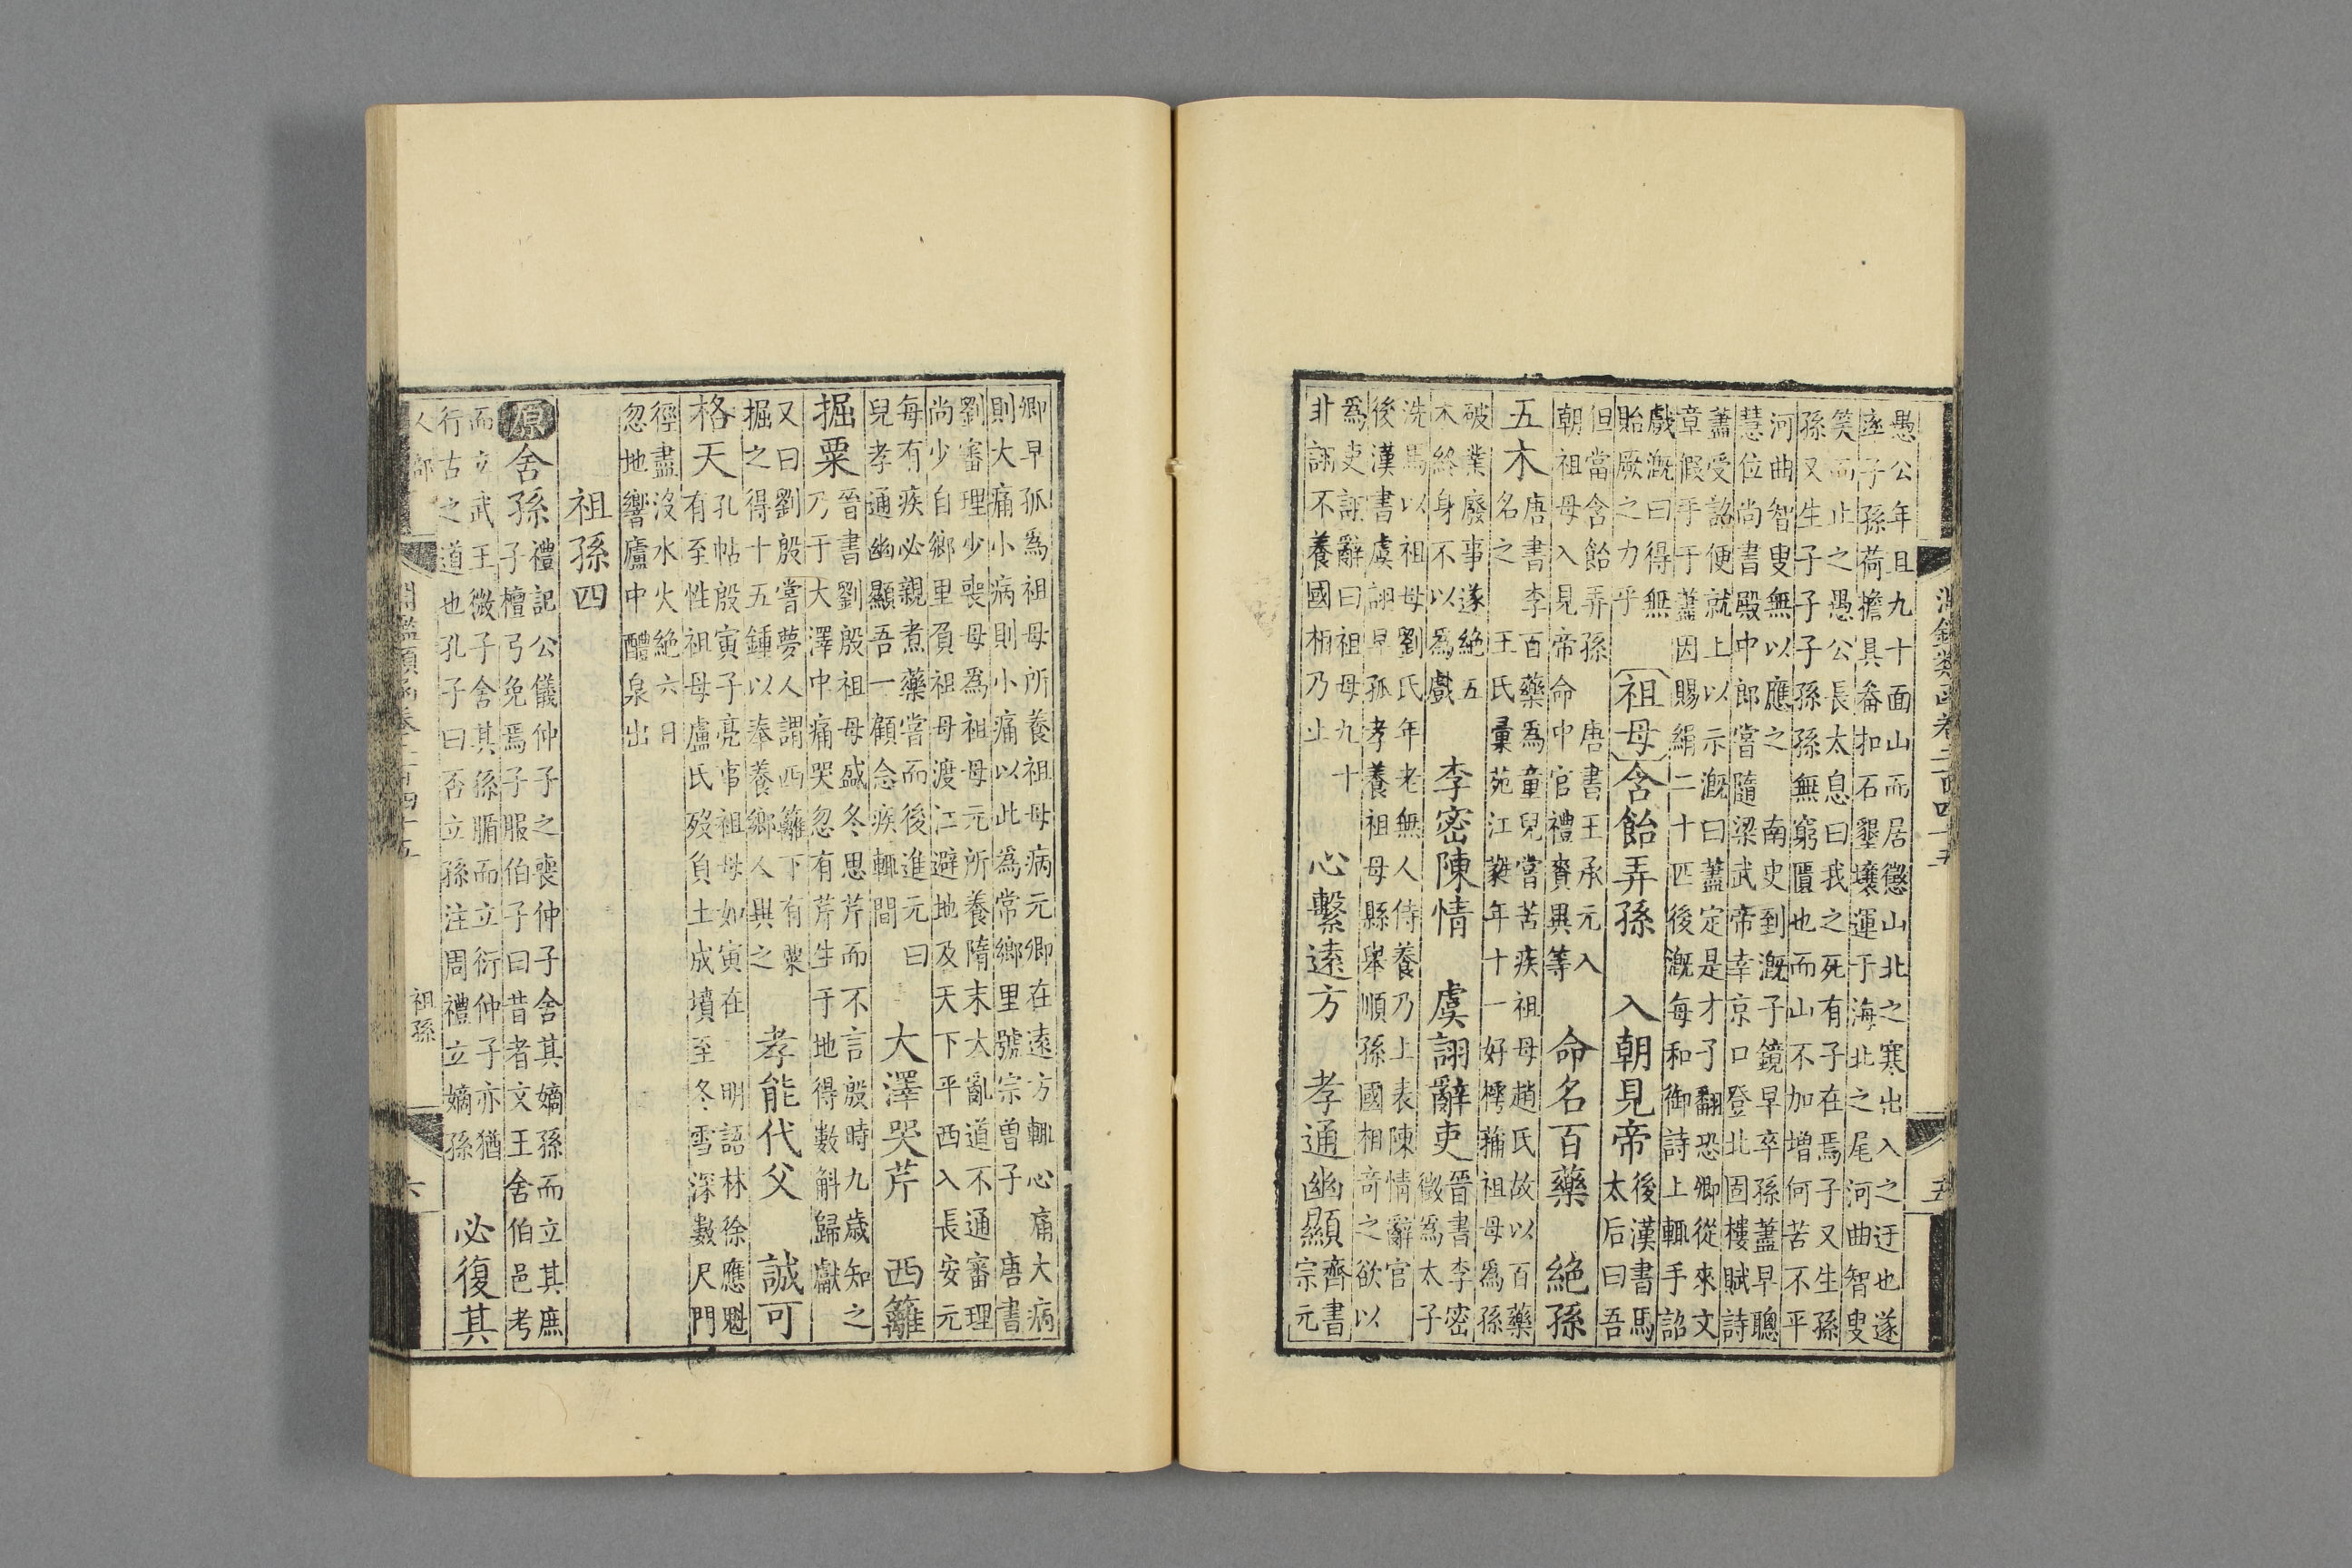 淵鑑類函卷二百四十五 五
愚公年且九十面山而居懲山北之寒出入之迂也遂
率子孫荷擔具畚扣石墾壤運于海北之尾河曲智叟
笑而止之愚公長太息曰我之死有子在焉子又生孫
孫又生子子子孫孫無窮匱也而山不加增何苦不平
河曲智叟無以應之 南史到漑子鏡早卒孫藎早聰
慧位尚書殿中郎嘗隨梁武帝幸京口登北固樓賦詩
藎受詔便就上以示漑曰藎定是才子翻恐卿從來文
章假手于藎因賜絹二十匹後漑每和御詩上輒手詔
戲漑曰得無
貽厥之力乎
〔祖母〕含飴弄孫 入朝見帝
後漢書馬
太后曰吾
但當含飴弄孫 唐書王承元入
朝祖母入見帝命中官禮賚異等
命名百藥 絶孫
五木
唐書李百藥爲童兒嘗苦疾祖母趙氏故以百藥
名之 王氏彙苑江蕤年十一好樗蒱祖母爲孫
破業廢事遂絶五
木終身不以爲戲
李密陳情 虞詡辭吏
晉書李密
徵爲太子
洗馬以祖母劉氏年老無人侍養乃上表陳情辭官
後漢書虞詡早孤孝養祖母縣舉順孫國相奇之欲以
爲吏詡辭曰祖母九十
非詡不養國相乃止
心繫遠方 孝通幽顯
齊書
宗元
卿早孤爲祖母所養祖母病元卿在遠方輒心痛大病
則大痛小病則小痛以此爲常鄉里號宗曾子 唐書
劉審理少喪母爲祖母元所養隋末大亂道不通審理
尚少自鄉里負祖母渡江避地及天下平西入長安元
每有疾必親煮藥嘗而後進元曰
兒孝通幽顯吾一顧念疾輒間
大澤哭芹 西籬
掘粟
晉書劉殷祖母盛冬思芹而不言殷時九歲知之
乃于大澤中痛哭忽有芹生于地得數斛歸獻
又曰劉殷嘗夢人謂西籬下有粟
掘之得十五鍾以奉養鄉人異之
孝能代父 誠可
格天
孔帖殷寅子亮事祖母如寅在 明語林徐應魁
有至性祖母盧氏歿負土成墳至冬雪深數尺門
徑盡沒水火絶六日
忽地響廬中醴泉出
祖孫四
原 舍孫
禮記公儀仲子之喪仲子舍其嫡孫而立其庶
子檀弓免焉子子服伯子曰昔者文王舍伯邑考
而立武王微子舍其孫腯而立衍仲子亦猶
行古之道也孔子曰否立孫注周禮立嫡孫
必復其
人部 淵鑑類函卷二百四十五 祖孫 六